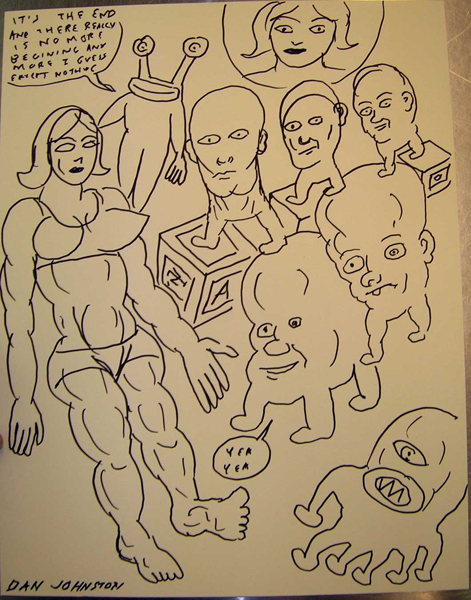 IT'S THE END
AND THERE REALLY
IS NO MORE
BEGINING ANY
MORE I GUESS
EXCEPT NOTHING
YEA
YEA
A
DAN JOHNSTON